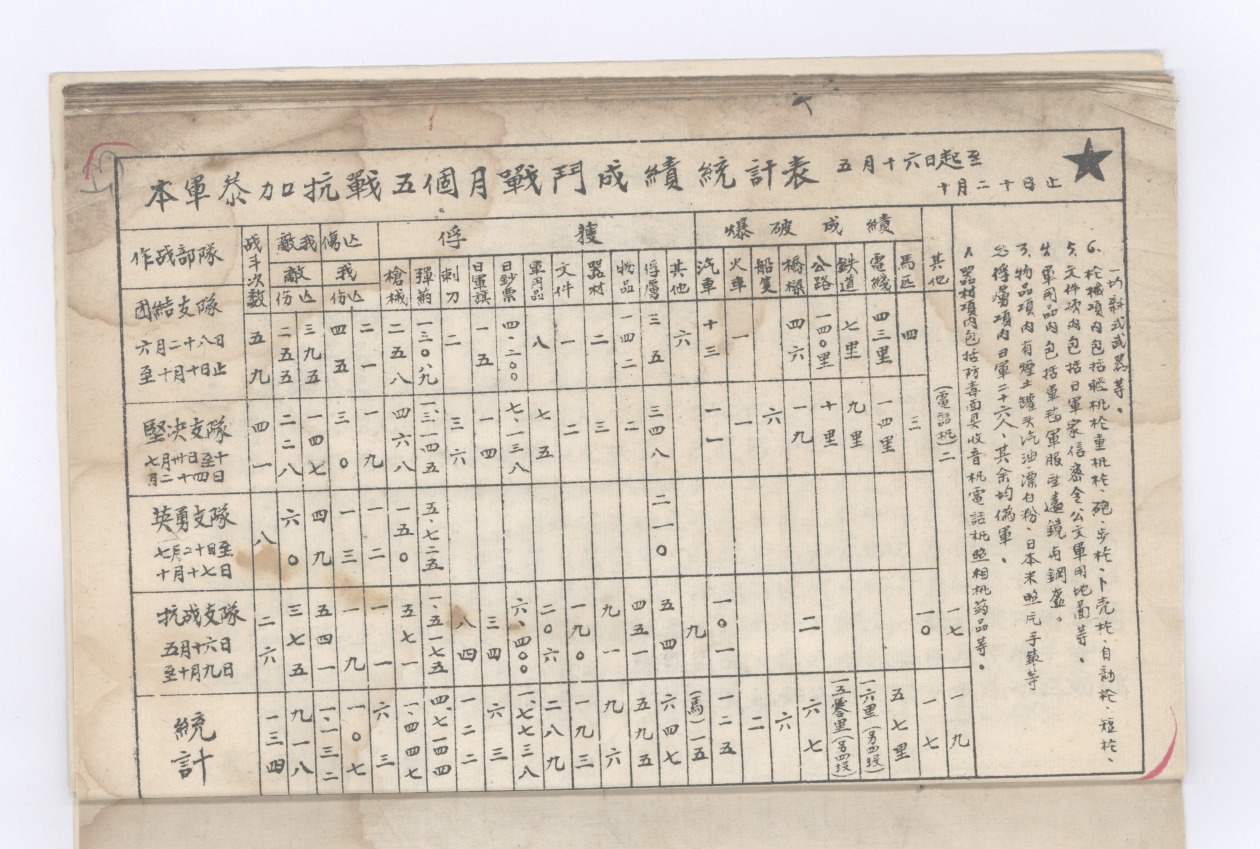 本軍叅加抗戰五個月戰鬥成績統計表 五月十六日起至
十月二十日止
作战部隊 战斗次數 敵我傷亡 俘獲 爆破成績 其他
敵 我
伤 亡 伤 亡 槍械 彈葯 刺刀 日軍旗 日鈔票 軍用品 文件 器材 物品 俘虜 其他 汽車 火車 船隻 橋樑 公路 鉄道 電綫 馬匹
团結支隊
六月二十八日
至十月十日止
五九 二五五 三九五 四五 二一 二五八 一三〇八九 二 一五 四、二〇〇 八 一 二 一四二 三五 六 十三 一 四六 一四〇里 七里 四三里 四
堅决支隊
七月卅日至十
月二十四日
四一 二二八 一四七 三〇 一九 四六八 一三、一四五 三六 一四 七、一三八 七五 二 三 二 三四八 一一 六 一九 十里 九里 一四里 三 (電話机)二
英勇支隊
七月二十日至
十月十七日
八 六〇 四九 一三 一二 一五〇 五、七二五 二一〇
抗战支隊
五月十六日
至十月九日
二六 三七五 五四一 一九 一一 五七一 一、五一七五 八四 三四 六、四〇〇 二〇六 一九〇 九一 四五一 五四 九 一〇一 二 一〇 一七
統計
一三四 九一八 一、一三二 一〇七 六三 一、四四七 四、七一四四 一二二 六三 一、七七三八 二八九 一九三 九六 五九五 六四七 (馬)一五 一二五 二 六 六七 一五零里(另四段) 一六里(另四段) 五七里 一七 一九
1. 器材項内包括防毒面具收音机電話机照相机葯品等。
2. 俘虜項内日軍二十六人、其余均偽軍。
3. 物品項内有煙土罐头汽油漂白粉、日本米照片手錶等
4. 軍用品内包括軍毯軍服望遠鏡与鋼盔。
5. 文件项内包括日軍家信密令公文軍用地啚等。
6. 枪械項内包括輕机枪重机枪、砲、步枪、卜壳枪、自动枪、短枪、
一切新式武器等。